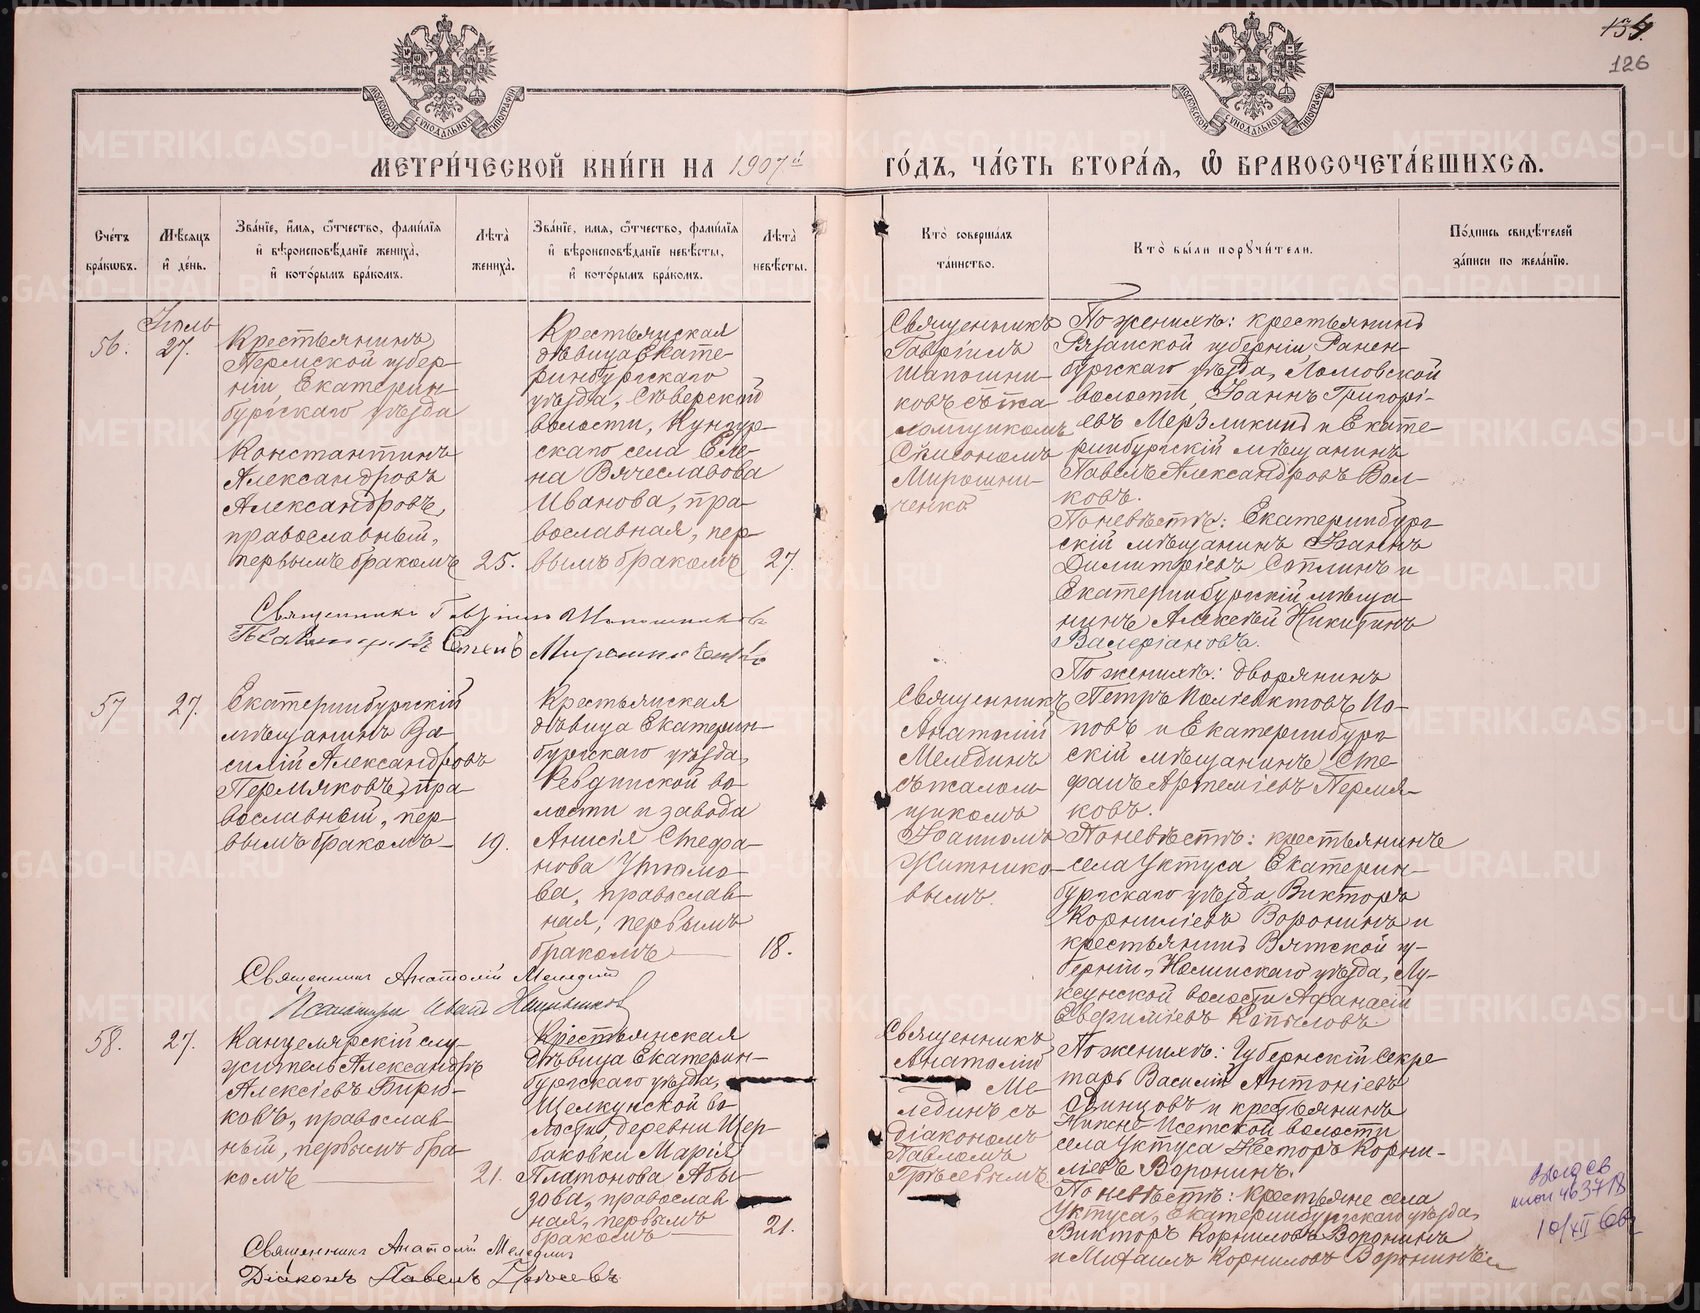 134.
126
МОСКОВСКОЙ СѴНОДАЛЬНОЙ ТИПОГРАФІИ
МОСКОВСКОЙ СѴНОДАЛЬНОЙ ТИПОГРАФІИ
МЕТРИ́ЧЕСКОЙ КНИ́ГИ НА 1907й ГО́ДЪ, ЧА́СТЬ ВТОРА́Я, Ѡ БРАКОСОЧЕТА́ВШИХСЯ.
Сче́тъ бра́кѡвъ.
Мѣ́сяцъ и҆ де́нь.
Зва́нїе, и҆́мя, ѻ҆́тчество, фами́лїя и҆ вѣроисповѣ́данїе жениха̀, и҆ кото́рымъ бра́комъ.
Лѣта̀ жениха̀.
Зва́нїе, и҆мя, ѻ҆́тчество, фами́лїя и҆ вѣроисповѣ́данїе невѣ́сты, и҆ кото́рымъ бра́комъ.
Лѣта̀ невѣ́сты.
Кто̀ соверша́лъ та́инство.
Кто̀ бы́ли порꙋчи́тели.
По́дпись свидѣ́телей за́писи по жела́нїю.
56.
Іюль
27.
Крестьянинъ
Пермской губер-
ніи Екатерин-
бургскаго уѣзда
Константинъ
Александровъ
Александровъ,
православный,
первымъ бракомъ
25.
Крестьянская
дѣвица Екате-
ринбургскаго
уѣзда, Сѣверской
волости, Кунгур-
скаго села Еле-
на Вячеславова
Иванова, пра-
вославная, пер-
вымъ бракомъ
27.
Священникъ
Гавріилъ
Шапошни-
ковъ съ пса-
ломщикомъ
Симеономъ
Мирошни-
ченко
По женихѣ: крестьянинъ
Рязанской губерніи, Ранен-
бургскаго уѣзда, Ломовской
волости, Іоаннъ Григорі-
евъ Мерзликинъ и Екате-
ринбургскій мѣщанинъ
Павелъ Александровъ Вол-
ковъ.
По невѣстѣ: Екатеринбург-
скій мѣщанинъ Іоаннъ
Димитріевъ Сотлинъ и
Екатеринбургскій мѣща-
нинъ Алексѣй Никитинъ
Валеріановъ.
Священникъ Гавріилъ Шапошниковъ
Псаломщикъ Семенъ Мирошниченко
57
27.
Екатеринбургскій
мѣщанинъ Ва-
силій Александровъ
Пермяковъ, пра-
вославный, пер-
вымъ бракомъ
19.
Крестьянская
дѣвица Екатерин-
бургскаго уѣзда,
Ревдинской во-
лости и завода
Анисія Стефа-
нова Утюмо-
ва, православ-
ная, первымъ
бракомъ
18.
Священникъ
Анатолій
Мелединъ
съ псалом-
щикомъ
Іоанномъ
Житнико-
вымъ.
По женихѣ: дворянинъ
Петръ Поліевктовъ По-
повъ и Екатеринбург-
скій мѣщанинъ Сте-
фанъ Артеміевъ Пермя-
ковъ.
По невѣстѣ: крестьянинъ
села Уктуса, Екатерин-
бургскаго уѣзда, Викторъ
Корниліевъ Воронинъ и
крестьянинъ Вятской гу-
берніи, Нолинскаго уѣзда,
волости Афанасій
Евфиміевъ Копыловъ
Священникъ Анатолій Мелединъ
Псаломщикъ Иванъ Житниковъ
58.
27.
Канцелярскій слу-
житель Александръ
Алексіевъ Бирю-
ковъ, православ-
ный, первымъ бра-
комъ
21.
Крестьянская
дѣвица Екатерин-
бургскаго уѣзда,
Щелкунской во-
лости, деревни Щер-
баковки Марія
Платонова Абы-
зова, православ-
ная, первымъ
бракомъ
21.
Священникъ
Анатолій
Ме-
лединъ съ
діакономъ
Павломъ
По женихѣ: Губернскій Секре-
тарь Василій Антоніевъ
Свинцовъ и крестьянинъ
Нижне-Исетской волости
села Уктуса Несторъ Корни-
ліевъ Воронинъ.
По невѣстѣ: крестьяне села
Уктуса, Екатеринбургскаго уѣзда,
Викторъ Корниловъ Воронинъ
и Михаилъ Корниловъ Воронинъ
Священникъ Анатолій Мелединъ
Діаконъ Павелъ
10/XII